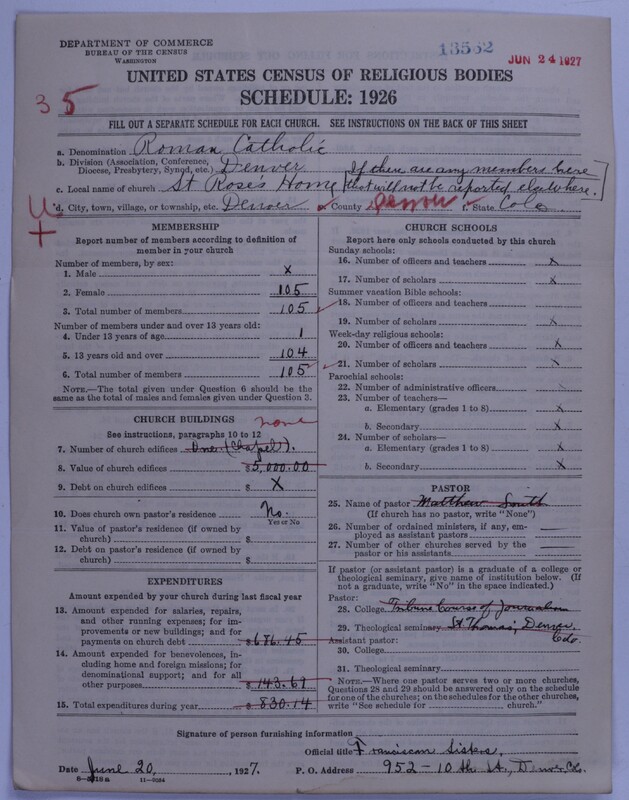 DEPARTMENT OF COMMERCE
BUREAU OF THE CENSUS
WASHINGTON
13562
JUN 24 1927
UNITED STATES CENSUS OF RELIGIOUS BODIES
SCHEDULE: 1926
35
FILL OUT A SEPARATE SCHEDULE FOR EACH CHURCH. SEE INSTRUCTIONS ON THE BACK OF THIS SHEET
a. Denomination Roman Catholic
b. Division (Association, Conference, Diocese, Presbytery, Synod, etc.) Denver
If there are any members here that will not be reported elsewhere.
c. Local name of church St Roses Home
d. City, town, village, or township, etc. Denver e. County Denver f. State Colo.
MEMBERSHIP
Report number of members according to definition of
member in your church
Number of members, by sex:
1. Male X
2. Female 105
3. Total number of members 105
Number of members under and over 13 years old:
4. Under 13 years of age 1
5. 13 years old and over 104
6. Total number of members 105
NOTE.—The total given under Question 6 should be the
same as the total of males and females given under Question 3.
CHURCH BUILDINGS none
See instructions, paragraphs 10 to 12
7. Number of church edifices One (Chapel).
8. Value of church edifices $5,000.00
9. Debt on church edifices $ X
10. Does church own pastor's residence No.
Yes or No
11. Value of pastor's residence (if owned by
church) $
12. Debt on pastor's residence (if owned by
church) $
EXPENDITURES
Amount expended by your church during last fiscal year
13. Amount expended for salaries, repairs,
and other running expenses; for im-
provements or new buildings; and for
payments on church debt $686.45
14. Amount expended for benevolences, in-
cluding home and foreign missions; for
denominational support; and for all
other purposes $143.69
15. Total expenditures during year $830.14
CHURCH SCHOOLS
Report here only schools conducted by this church
Sunday schools:
16. Number of officers and teachers X
17. Number of scholars X
Summer vacation Bible schools:
18. Number of officers and teachers
19. Number of scholars X
Week-day religious schools:
20. Number of officers and teachers X
21. Number of scholars
Parochial schools:
22. Number of administrative officers
23. Number of teachers—
a. Elementary (grades 1 to 8) X
b. Secondary X
24. Number of scholars—
a. Elementary (grades 1 to 8) X
b. Secondary X
PASTOR
25. Name of pastor Matthew South
(If church has no pastor, write "None")
26. Number of ordained ministers, if any, em-
ployed as assistant pastors
27. Number of other churches served by the
pastor or his assistants
If pastor (or assistant pastor) is a graduate of a college or
theological seminary, give name of institution below. (If
not a graduate, write "No" in the space indicated.)
Pastor:
28. College Tribune Course of Journalism
29. Theological seminary St Thomas', Denver, Colo.
Assistant pastor:
30. College
31. Theological seminary
NOTE.—Where one pastor serves two or more churches,
Questions 28 and 29 should be answered only on the schedule
for one of the churches; on the schedules for the other churches,
write "See schedule for church."
Signature of person furnishing information
Official title Franciscan Sisters.
Date June 20, 1927. P. O. Address 952-10th St., Denver, Colo.
11-9394